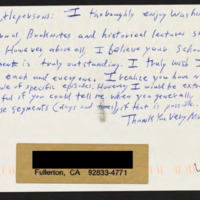 I thoroughly enjoy Washin
nal, Booknotes and historical features s
However above all I believe your School
ment is truly outstanding. I truly wish I
each and everyone. I realize you have n
of specific episodes. However I would be extre
ful if you could tell me when you generally
se segments (days and times) if that is possible.
Thank You Very Mu
Fullerton, CA 92833-4771